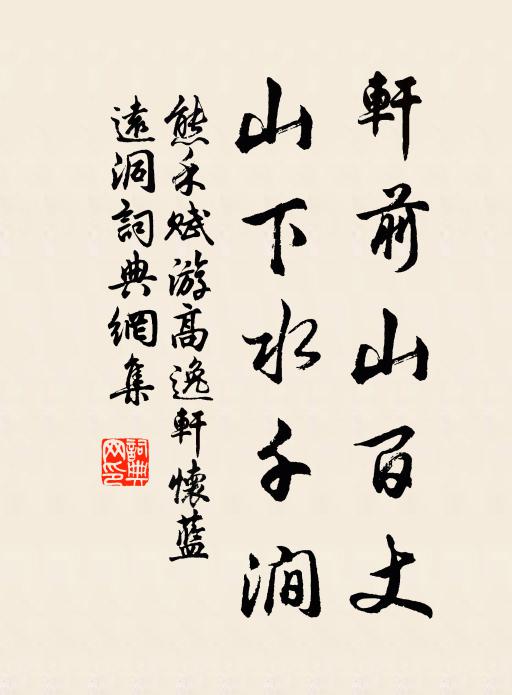 軒前山百丈
山下水千澗
熊禾賦游高逸軒懷藍
遠洞詞典網集
詞典網印